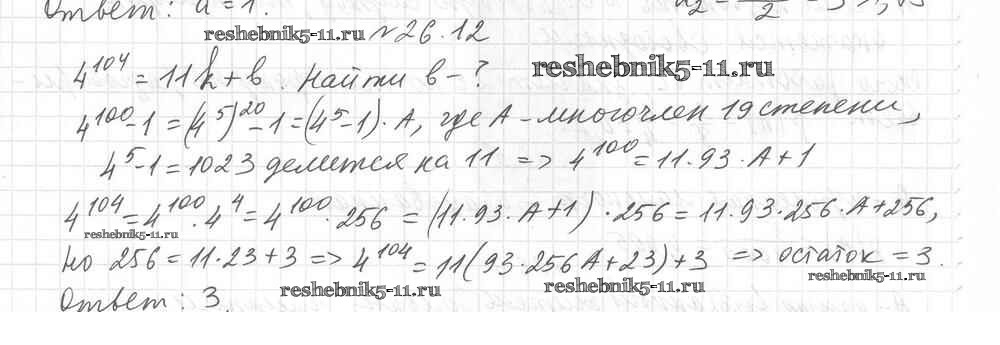 Ответ: a = 1.
reshebnik5-11.ru №26.12
4^104 = 11k + в. найти в - ? reshebnik5-11.ru
4^100 - 1 = (4^5)^20 - 1 = (4^5 - 1) · A, где A - многочлен 19 степени,
4^5 - 1 = 1023 делится на 11 => 4^100 = 11·93·A + 1
4^104 = 4^100 · 4^4 = 4^100 · 256 = (11·93·A + 1) · 256 = 11·93·256·A + 256,
reshebnik5-11.ru
но 256 = 11·23 + 3 => 4^104 = 11(93·256A + 23) + 3 => остаток = 3.
reshebnik5-11.ru reshebnik5-11.ru reshebnik5-11.ru
Ответ: 3